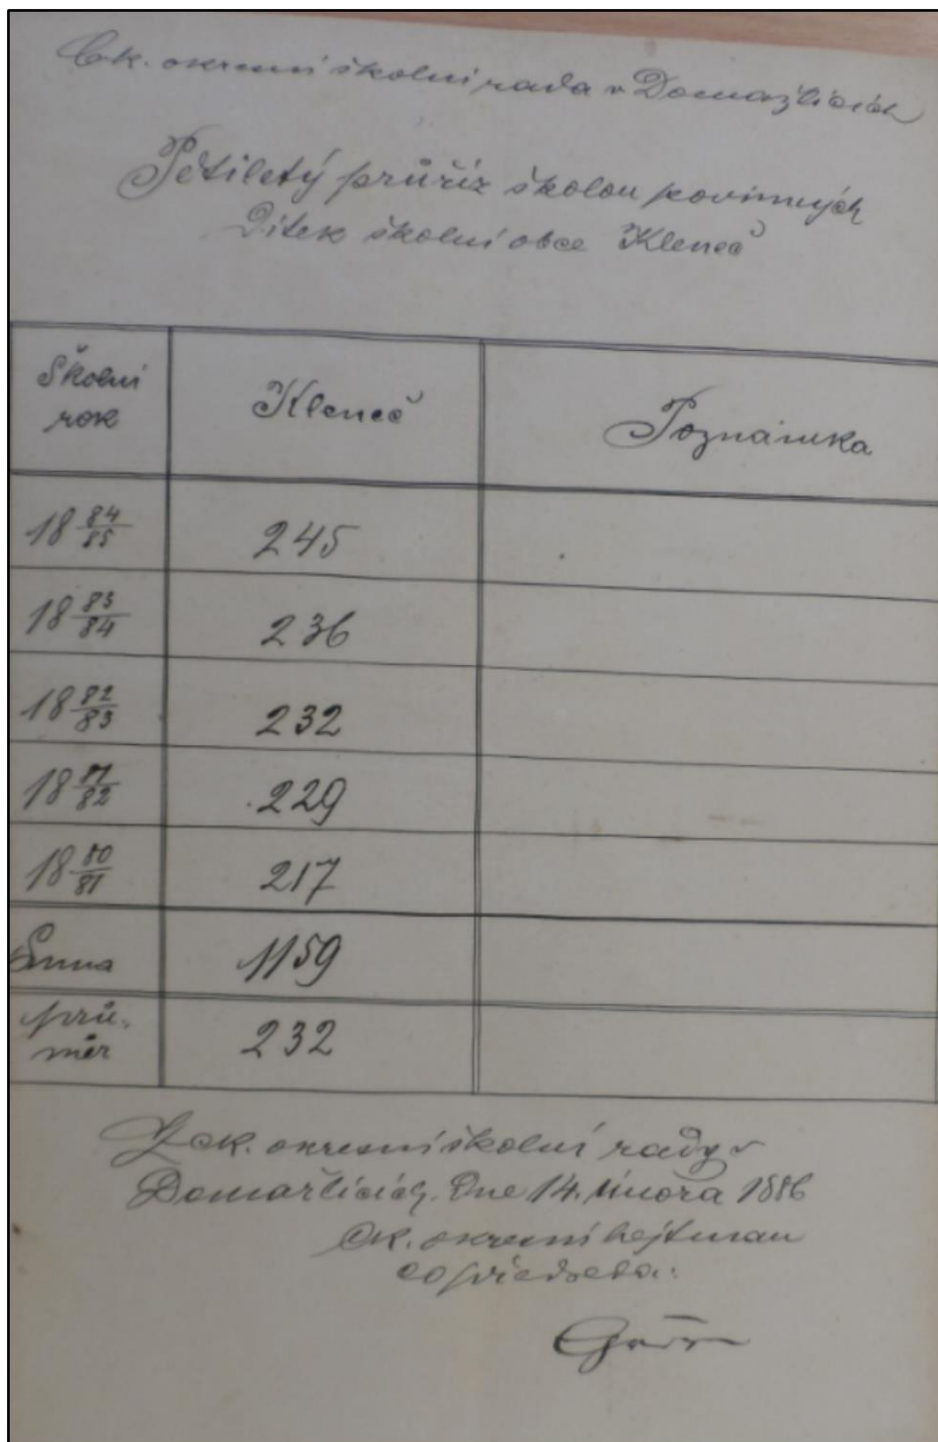 Ck. okresní školní rada v Domažlicích
Pětiletý průřiz školou povinných
Dítek školní obce Kleneč
Školní rok
Kleneč
Poznámka
18 84/85
245
18 83/84
236
18 82/83
232
18 81/82
229
18 80/81
217
Suma
1159
prů-
měr
232
Z ck. okresní školní rady v
Domažlicích. Dne 14. února 1886
Ck. okresní hejtman
co předseda: